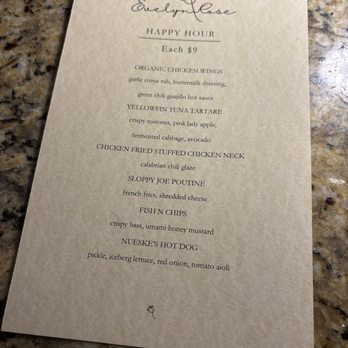 Evelyn Rose
HAPPY HOUR
Each $9
ORGANIC CHICKEN WINGS
garlic citrus rub, buttermilk dressing,
green chili guajillo hot sauce
YELLOWFIN TUNA TARTARE
crispy tostones, pink lady apple,
fermented cabbage, avocado
CHICKEN FRIED STUFFED CHICKEN NECK
calabrian chili glaze
SLOPPY JOE POUTINE
french fries, shredded cheese
FISH N CHIPS
crispy bass, umami honey mustard
NUESKE'S HOT DOG
pickle, iceberg lettuce, red onion, tomato aioli